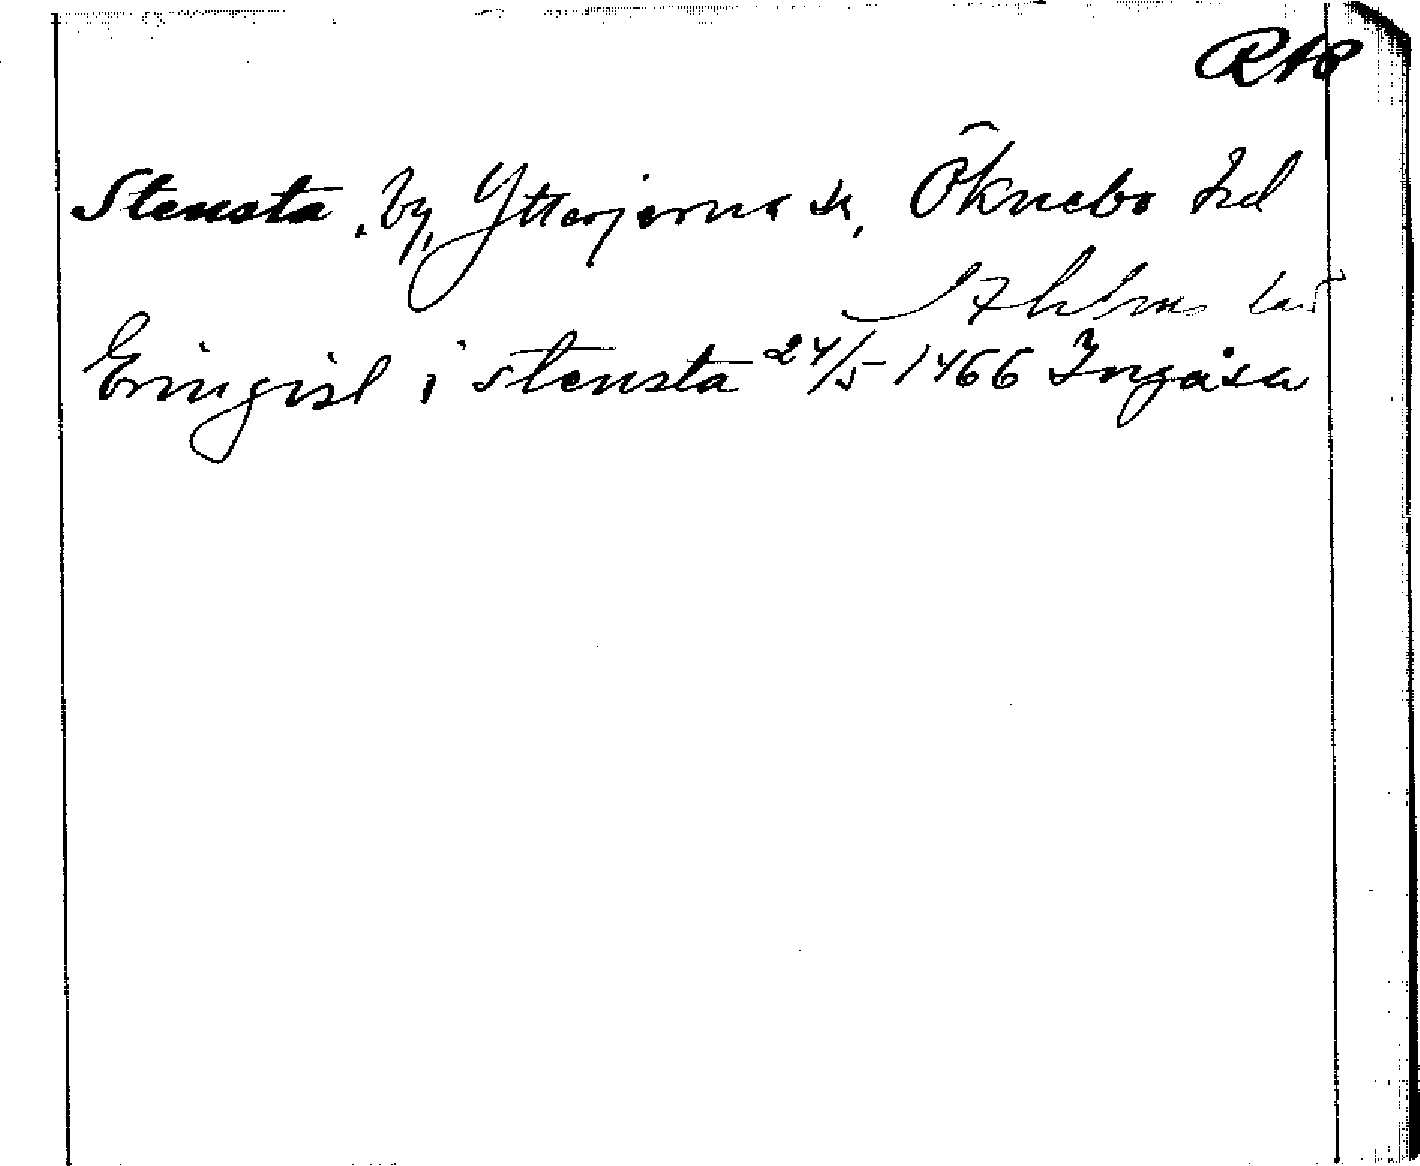 RAp
Stensta, by, Ytterjärna sn, Öknebo hd
Sthlms län
Eringisl i Stensta 24/5 1466 Ingåsa